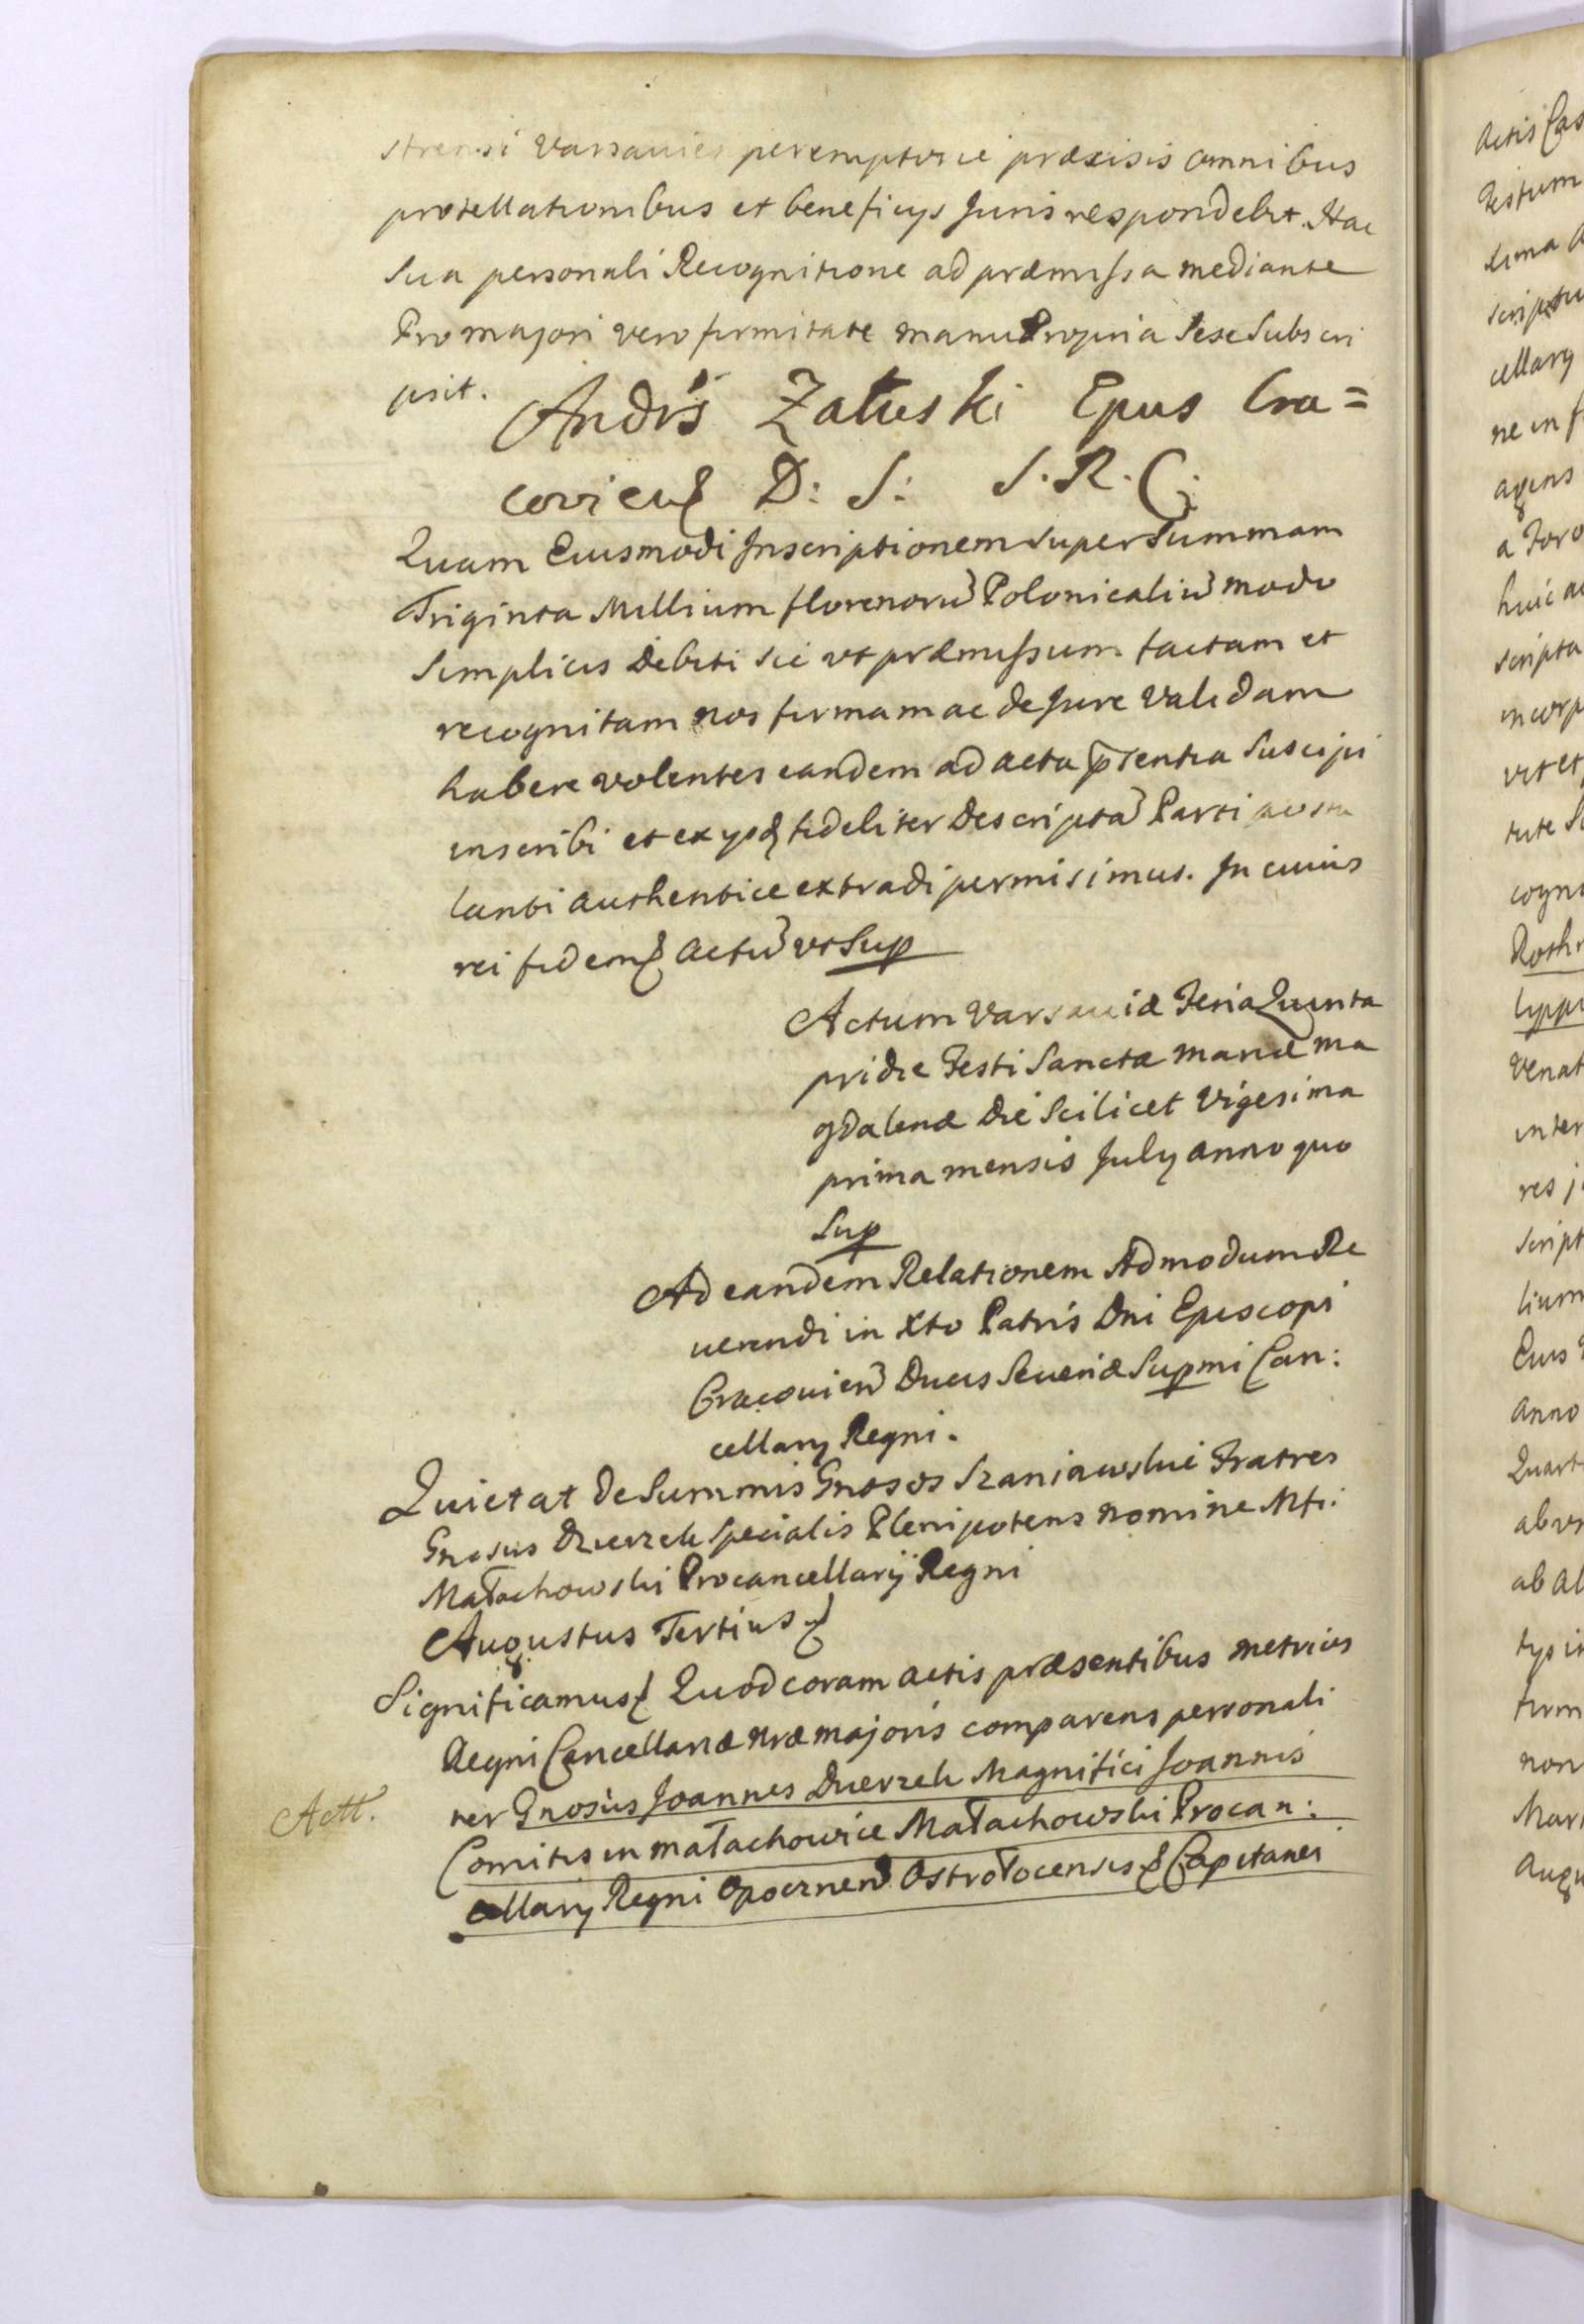 strensi Varsauien peremptorie præcisis omnibus
protellationibus et beneficys Juris respondebit. Hac
Sua personali Recognitione ad præmissa mediante
Pro majori vero firmitate manu Propria Sese Subscri
psit.
Andrs Załuski Epus Cra=
covien D: S: S.R.C.
Quam Eiusmodi Inscriptionem super Summam
Triginta Millium florenorū Polonicaliū modo
Simplicis Debiti sic vt præmissum factam et
recognitam nos firmam ac de Jure Validam
habere volentes eandem ad acta prsentia Suscipi
inscribi et ex ysdē fideliter Descriptā Parti postu
lanti authentice extradi permisimus. In cuius
rei fidem Actū vt Sup
Actum Varsauiæ Feria Quinta
pridie Festi Sanctæ Mariæ Ma
gdalenæ Die Scilicet Vigesima
prima mensis July anno quo
Sup
Ad eandem Relationem Admodum Re
uerendi in Xto Patris Dni Episcopi
Cracouien Ducis Seueriæ Supmi Can:
cellary Regni.
Quietat de Summis Gnosos Szaniawskie Fratres
Gnosus Specialis Plenipotens nomine Mfi:
Małachowski Procancellarÿ Regni
Augustus Tertius
Significamus Quod coram actis præsentibus metrices
Regni Cancellariæ nræ majoris comparens personali
Actt.
ter Gnosus Joannes Magnifici Joannis
Comitis in Małachowice Małachowski Procan:
cellary Regni Opocznen Ostrołocensis Capitanei
Actis Cas
scriptu
cellary
ne in f
agens
a Foro
scripta
vt et
Venat
inter
script
lium
Eius
Anno
Quart
ab al
non
Mari
Augu